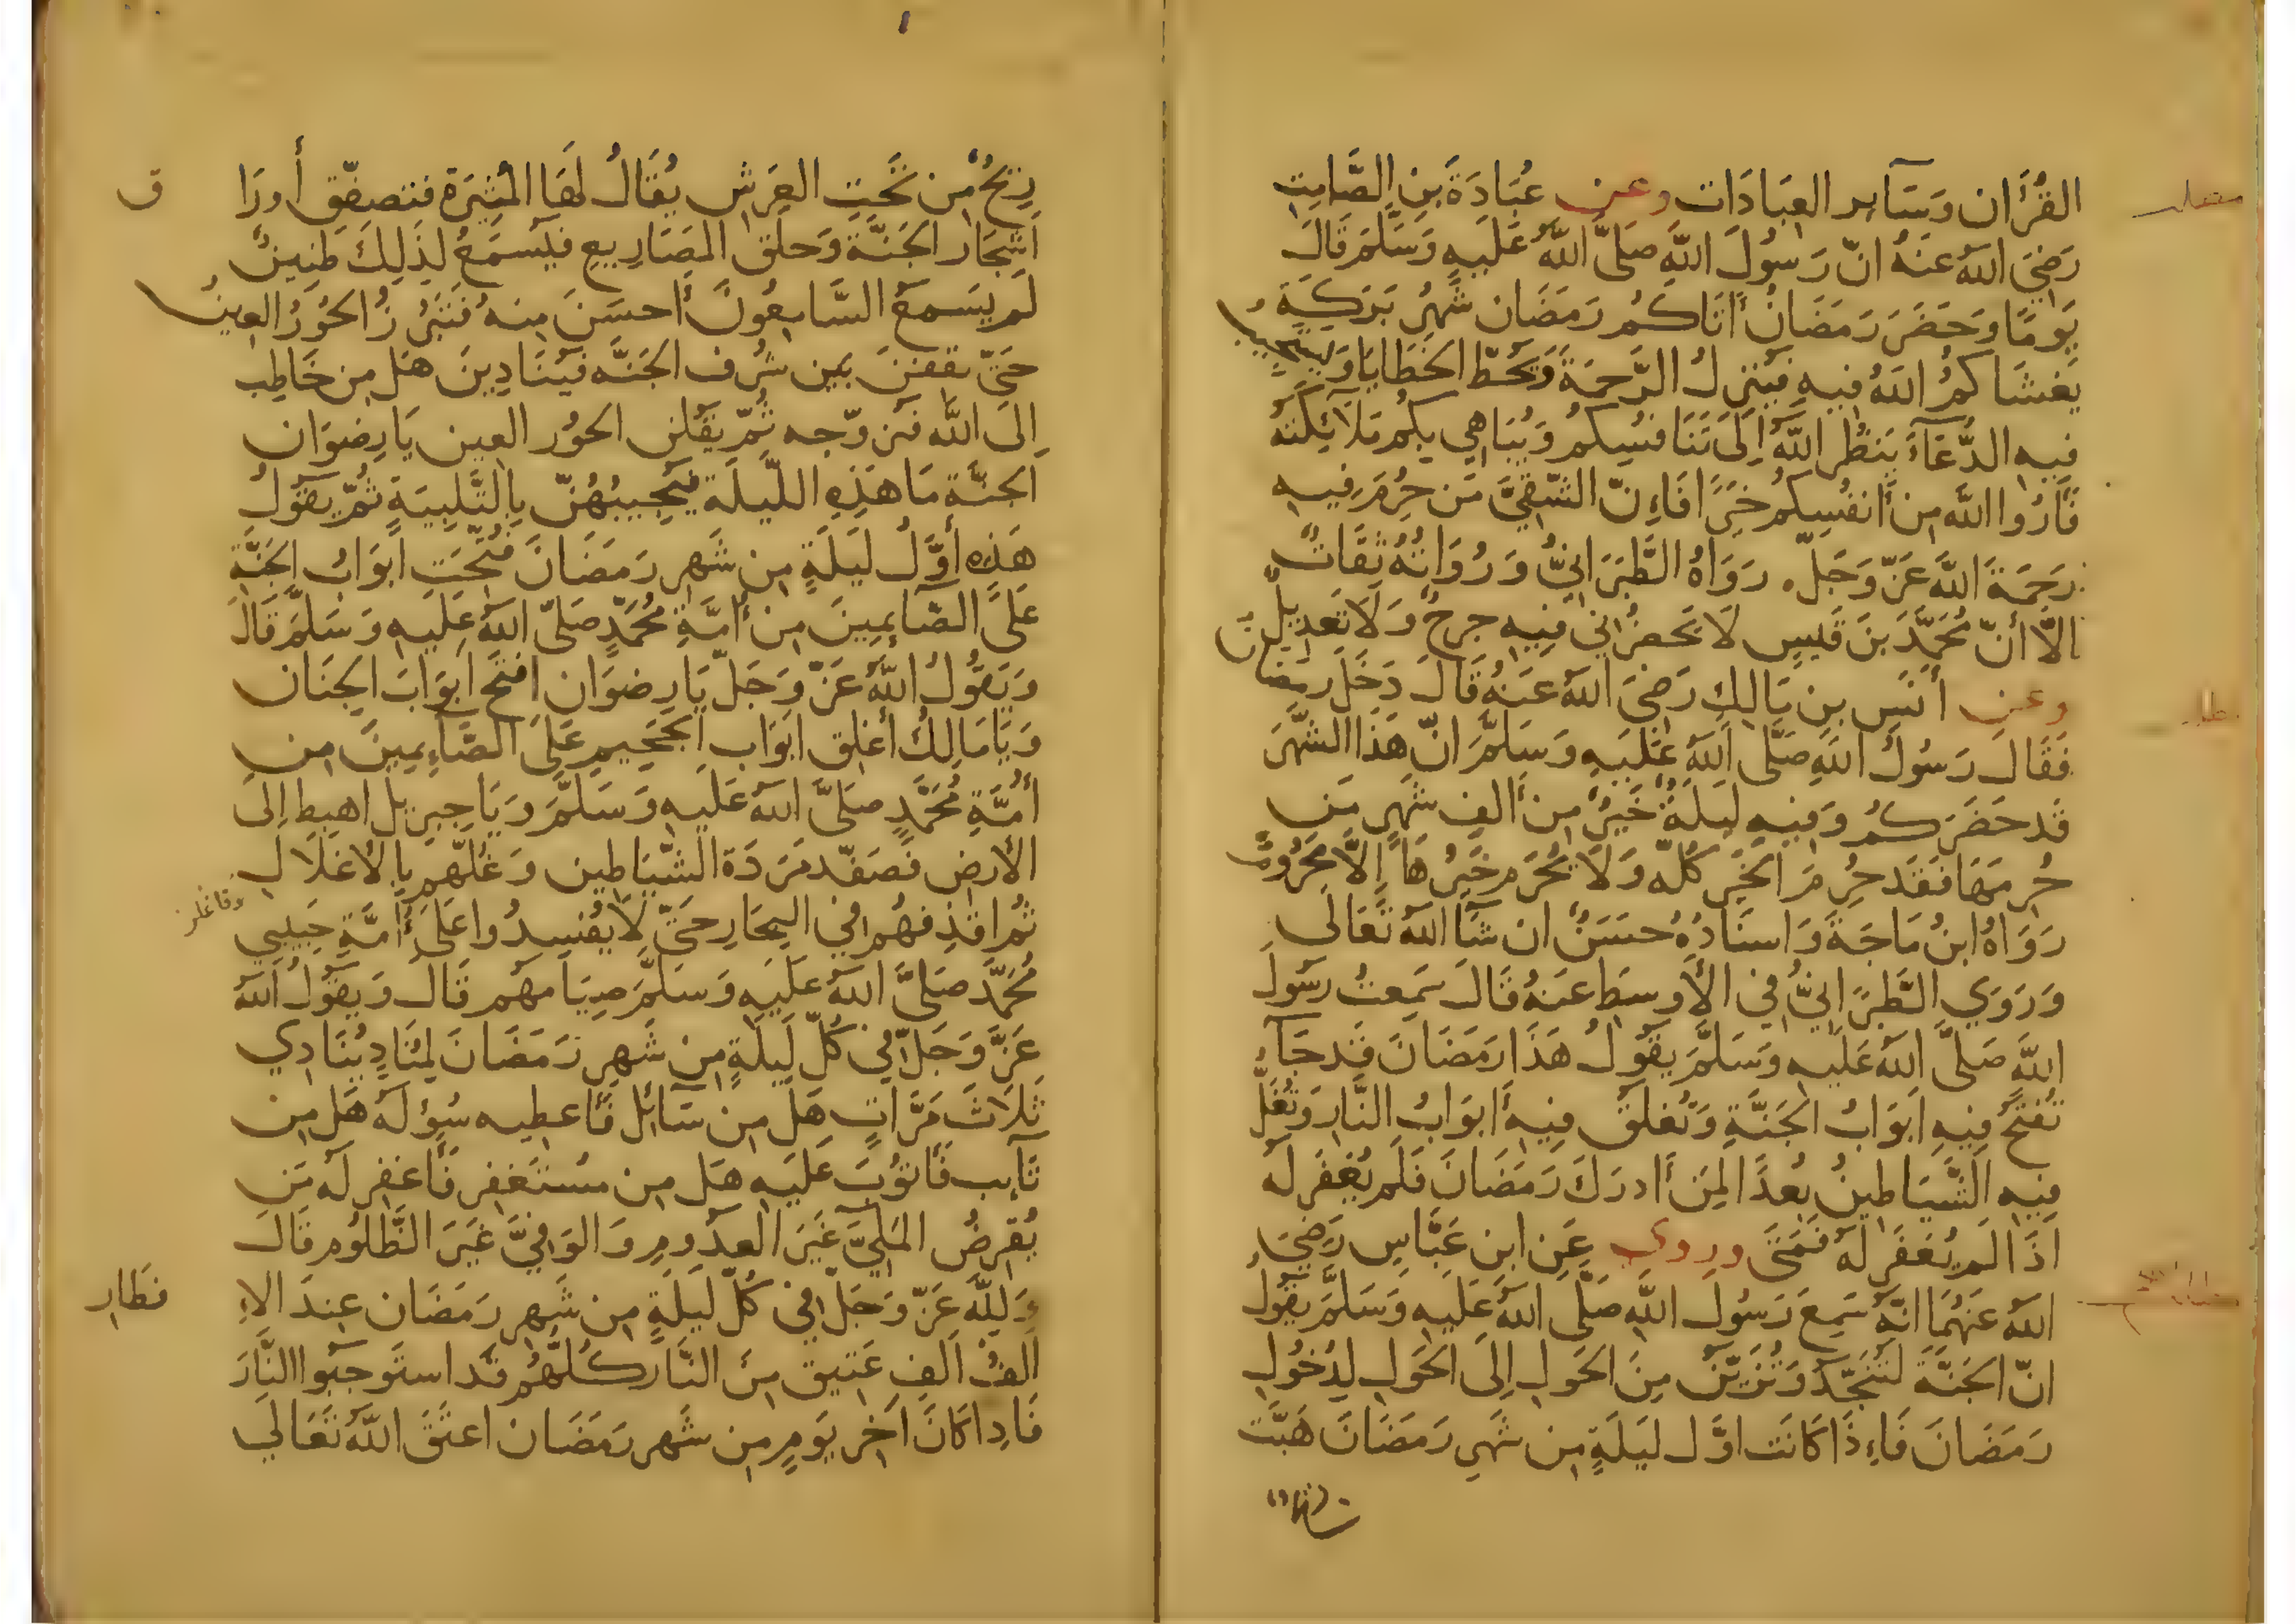 القُرْآن وَسَآير العِبَادَات وعن عُبَادَةَ بنِ الصَّامِتِ
رَضِيَ اللهُ عَنهُ انّ رَسُولَ اللهِ صَلَّى اللهُ عَلَيهِ وَسَلَّمَ قَالَ
يَومًا وَحَضَرَ رَمَضَانُ أَتَاكُم رَمَضَان شَهرُ بَرَكَةٍ
يَغشَاكُمُ اللهُ فيهِ فَيُنزِلُ الرَّحمَةَ وَيَحُطّ الخَطَايَا وَيَستَجيبُ
فِيهِ الدُّعَآءَ يَنظُر اللهُ إلَى تَنَافُسِكُم وَيُبَاهِي بِكُم مَلَائِكَتَهُ
فَأَرُوا اللهَ مِن أَنفُسِكُم خَيرًا فَإِنّ الشّقِيَّ مَن حُرِمَ فِيهِ
رَحمَةَ اللهِ عَزّ وَجَلّ رَوَاهُ الطَّبَرَانِيُّ وَرُوَاتُهُ ثِقَاتٌ
الّا أنّ مُحَمَّدَ بنَ قَيسٍ لَا يَحضُرُني فيهِ جرحٌ وَلَا تَعدِيلٌ
وعن أنَسِ بنِ مَالِكٍ رَضِيَ اللهُ عَنهُ قَالَ دَخَلَ رمَضَانُ
فَقَالَ رَسُولُ اللهِ صَلَّى اللهُ عَلَيهِ وَسَلَّمَ انّ هَذَا الشَّهرَ
قَد حَضَرَكُم وَفِيهِ لَيلَةٌ خَيرٌ مِن أَلفِ شَهرٍ مَن
حُرِمَهَا فَقَد حُرِمَ الخَيرَ كُلّه وَلَا يُحرَم خَيرُهَا إلّا مَحرُومٌ
رَوَاهُ ابنُ مَاجَةَ وَاسنَادُهُ حَسَنٌ ان شَآ اللهُ تَعَالى
وَرَوَي الطَّبَرَانِيُّ في الأَوسَطِ عَنهُ قَالَ سَمِعتُ رَسُولَ
اللهِ صَلَّى اللهُ عَلَيهِ وَسَلَّمَ يَقُولُ هَذَا رَمَضَانَ قَد جَآءَ
تُفتَحُ فِيهِ ابوَابُ الجَنَّةِ وَتُغلَقُ فِيهِ أبوَابُ النَّارِ وَتُغَلُّ
فِيهِ الشَّيَاطِينُ بُعدًا لِمَن أدرَكَ رَمَضَانَ فَلَم يُغفَر لَه
اذَا لَم يُغفَر لَه فَمَتَى وروي عَنِ ابنِ عَبَّاسٍ رَضِيَ
اللهُ عَنهُمَا انّهُ سَمِعَ رَسُولَ اللهِ صَلَّى اللهُ عَلَيهِ وَسَلَّمَ يَقُولُ
انّ الجَنَّةَ لَتُنَجَّدُ وَتُزَيَّنُ مِنَ الحَولِ إلَى الحَولِ لِدُخُولِ
رَمَضَانَ فَإِذَا كَانَت اوَّل لَيلَةٍ مِن شَهرِ رَمَضَانَ هَبَّت
رِيحٌ مِن تَحتِ العَرشِ يُقَالُ لَهَا المُثِيرَة فَتصفّقُ أَورَا ق
اشجَار الجَنَّة وَحَلَق المَصَارِيعِ فَيُسمَعُ لِذَلِكَ طَنِينٌ
لَم يَسمَعِ السَّامِعُونَ أَحسَنَ مِنهُ فَتَبرُزُ الحُورُ العِينُ
حَتّي تقفنَ بَين شُرَف الجَنَّه فَيُنَادِينَ هَل مِن خَاطِب
إلى اللهِ فَيزوّجه ثُمّ يَقُلنَ الحُور العِين يَا رِضوَان
الجَنَّةِ مَا هَذِهِ اللّيلَة فَيُجِيبُهُنّ بِالتَّلبِيَةِ ثُمّ يَقُولُ
هَذِهِ أَوَّلُ لَيلَةٍ مِن شَهرِ رَمَضَانَ فُتّحَتِ ابوَابُ الجَنَّةِ
عَلَى الصَّآيِمِينَ مِن أُمَّةِ مُحَمَّدٍ صَلّى اللهُ عَلَيهِ وَسَلَّمَ قَالَ
وَيَقُولُ اللهُ عَزّ وَجَلّ يَا رِضوَان افتَح ابوَابَ الجِنَان
وَيَا مَالِكُ أَغلِق ابوَابَ الجَحِيمِ عَلَى الصَّآيِمِينَ مِن
أُمَّةِ مُحَمَّدٍ صَلَّى اللهُ عَلَيهِ وَسَلَّمَ وَيَا جِبرِيل اهبِط إلى
الأَرضِ فَصَفّد مَرَدَةَ الشَّيَاطِين وَغُلّهُم بِالأَغلَالِ
ثُمّ اقذِفهُم في البِحَارِ حَتّي لَا يُفسِدُوا عَلَى أُمَّةِ حَبِيبي
مُحَمّد صَلَّى اللهُ عَلَيهِ وَسَلَّمَ صِيَامَهُم قَالَ وَيَقُولُ اللهُ
عَزَّ وَجَلّ في كُلّ لَيلَةٍ مِن شَهرِ رَمَضَانَ لِمُنَادٍ يُنَادِي
ثَلَاثَ مَرَّاتٍ هَل مِن سَآئل فَأُعطِيه سُؤلَهُ هَل مِن
تَآيب فَأَتُوبَ عَلَيهِ هَل مِن مُستَغفِر فَأَغفِر لَه مَن
يُقرِضُ المَلِيَّ غَيرَ العَدُومِ وَالوَفِيَّ غَيرَ الظَّلُومِ قَالَ
وَلِلّهِ عَزّ وَجَلّ في كُلّ لَيلَةٍ مِن شَهرِ رَمَضَان عِندَ الاِ فطَارِ
الفُ الفِ عَتِيق مِنَ النَّارِ كُلّهُم قَد استَوجَبُوا النَّارَ
فَاِذا كَانَ آخِر يَومٍ مِن شَهر رَمَضَان اعتَقَ اللهُ تَعَالَي